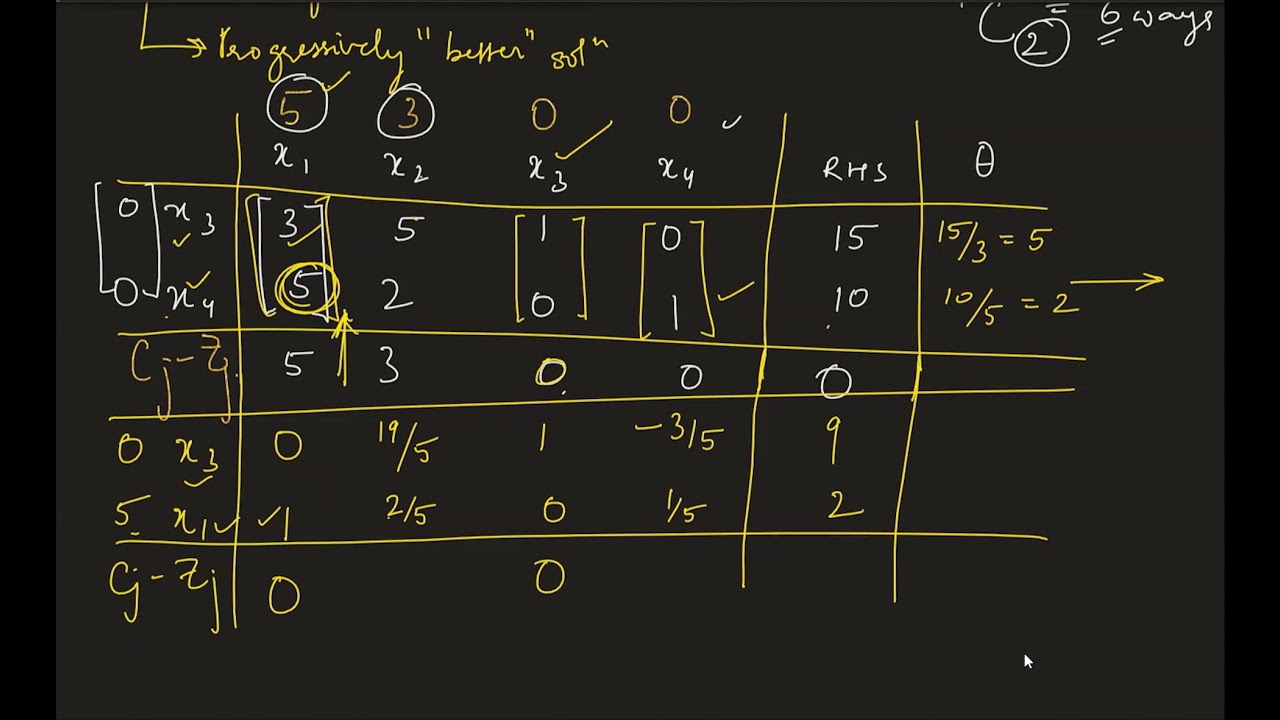 → Progressively "better" solⁿ
C₂ = 6 ways
5 3 0 0
x₁ x₂ x₃ x₄ RHS θ
0 x₃ 3 5 1 0 15 15/3 = 5
0 x₄ 5 2 0 1 10 10/5 = 2 →
Cj-Zj 5 3 0 0 0
0 x₃ 0 19/5 1 -3/5 9
5 x₁ 1 2/5 0 1/5 2
Cj-Zj 0 0